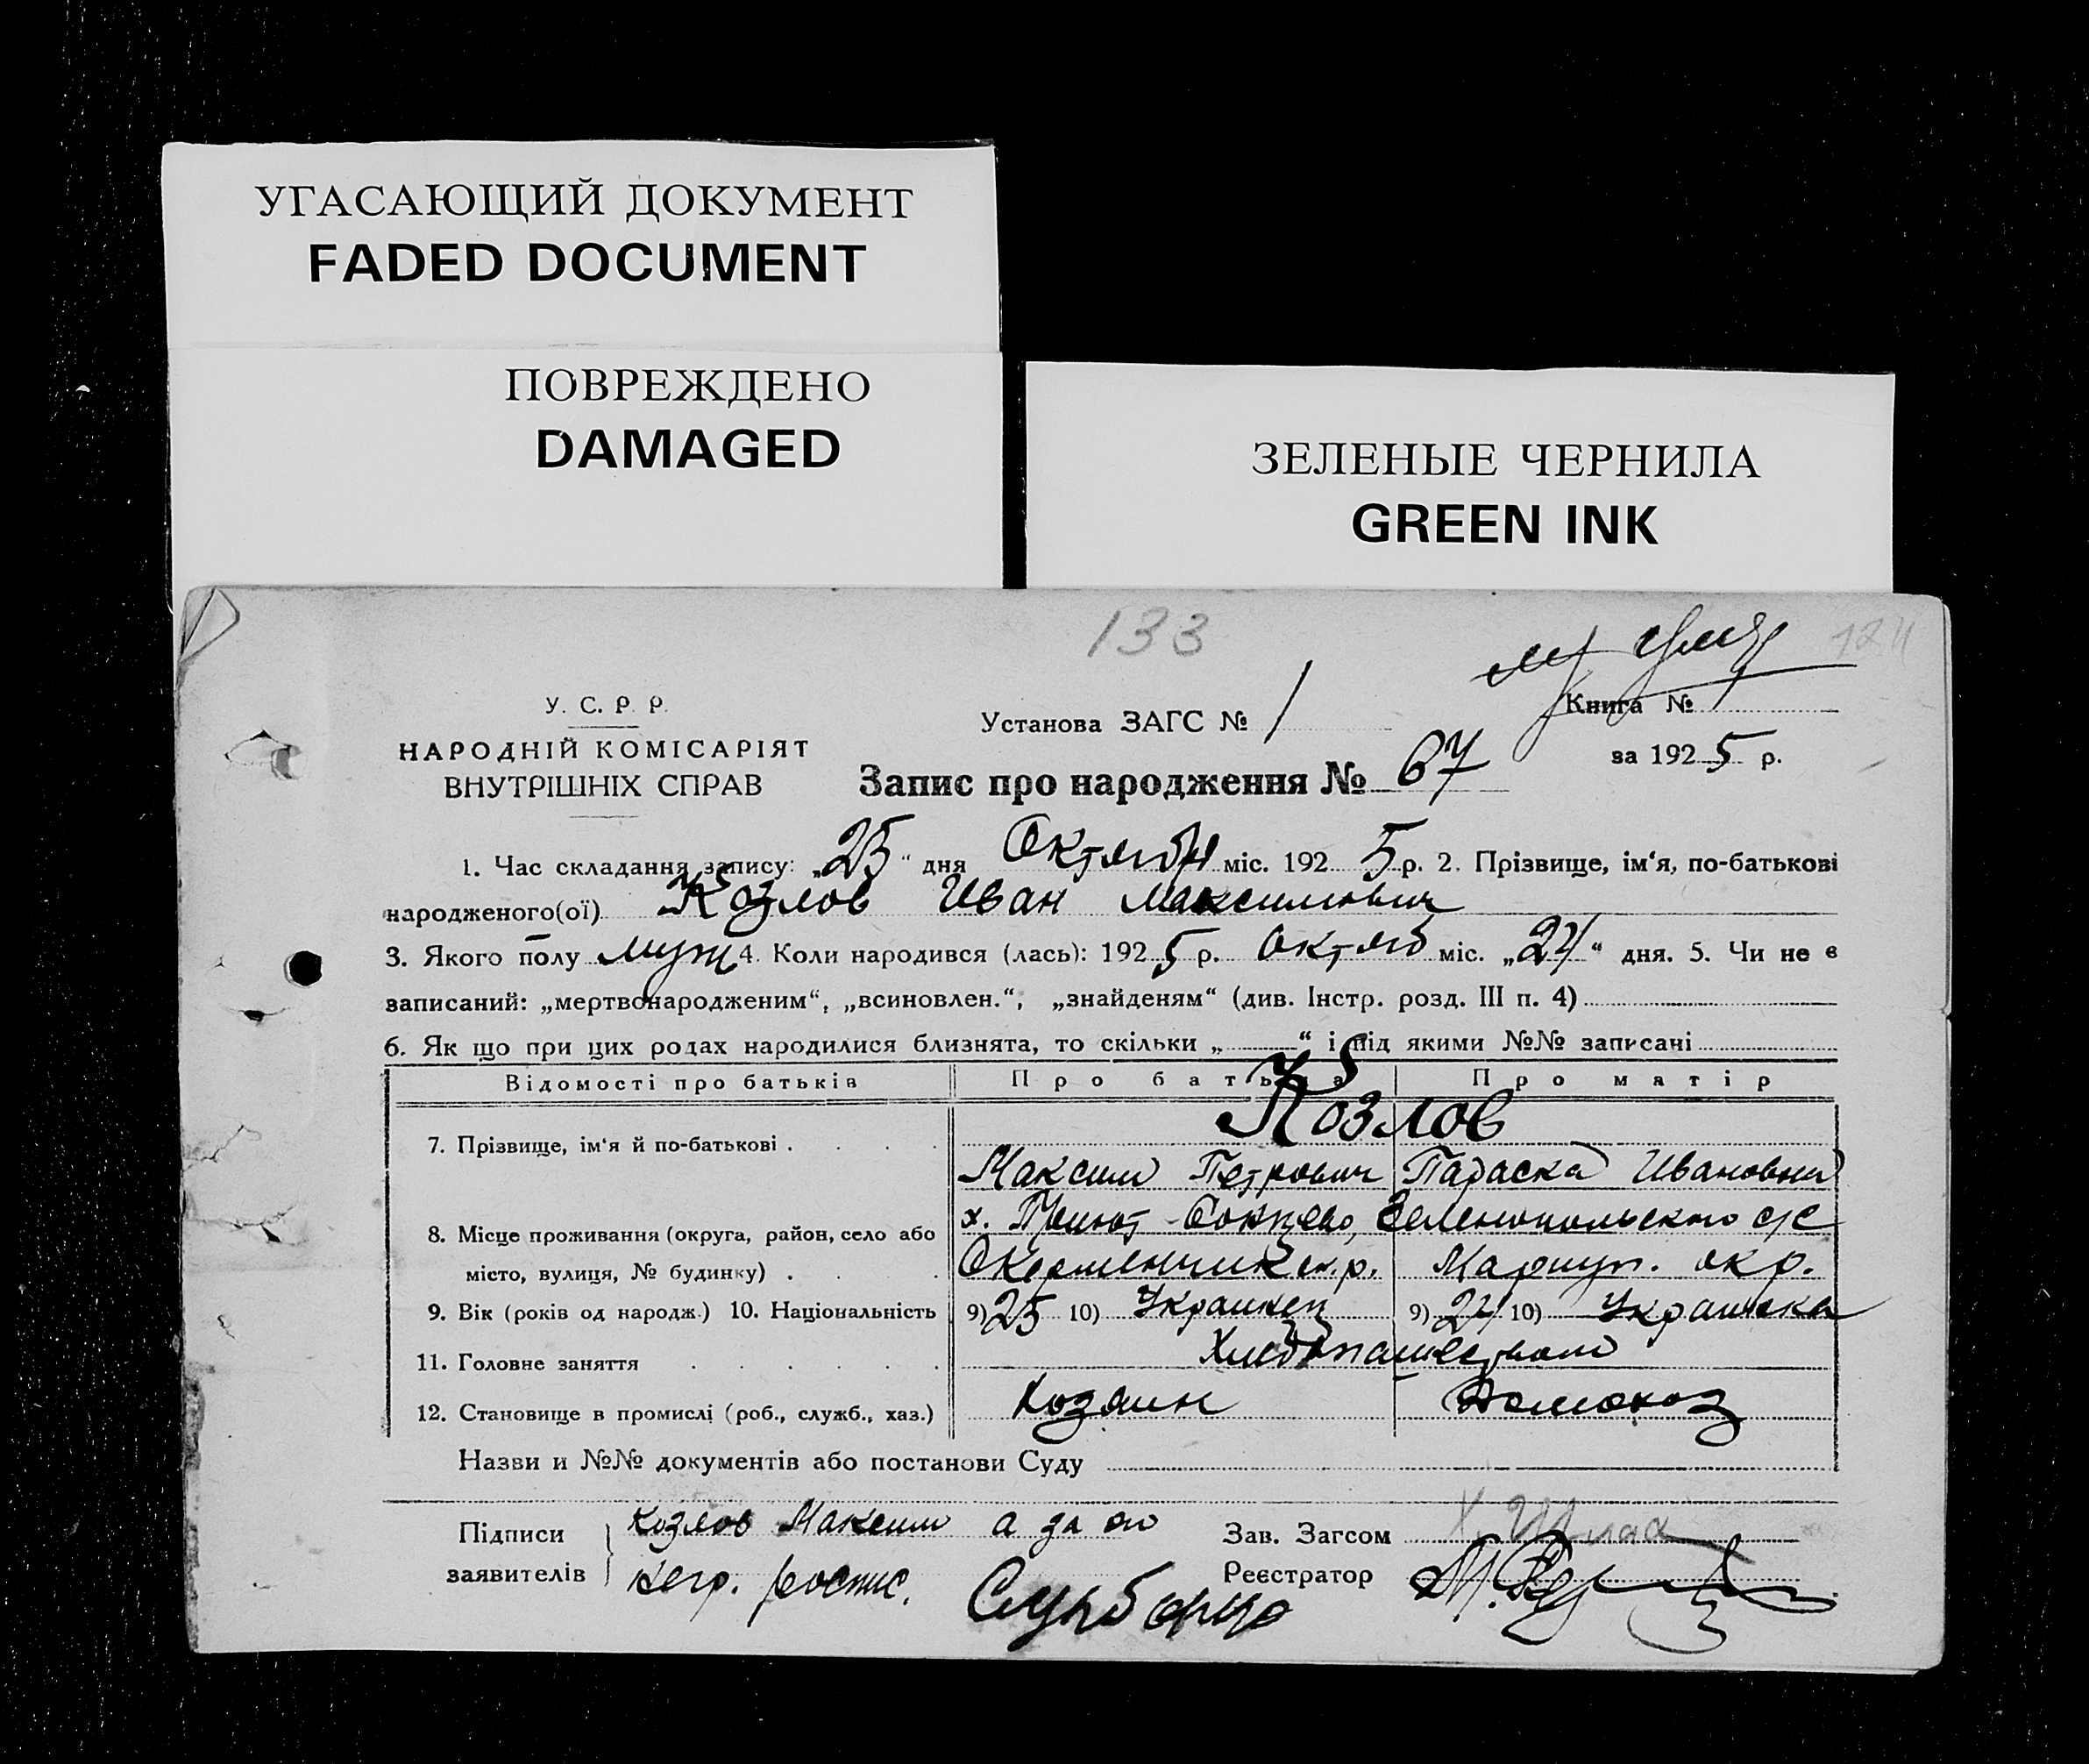 УГАСАЮЩИЙ ДОКУМЕНТ
FADED DOCUMENT
ПОВРЕЖДЕНО
DAMAGED
ЗЕЛЕНЫЕ ЧЕРНИЛА
GREEN INK
133
124
У. С. Р. Р.
НАРОДНІЙ КОМІСАРІЯТ
ВНУТРІШНІХ СПРАВ
Установа ЗАГС № 1
Книга № 1
за 1925 р.
Запис про народження № 67
1. Час складання запису: „25“ дня Октября міс. 1925 р. 2. Прізвище, ім‘я, по-батькові
народженого(ої) Козлов Иван Максимович
3. Якого полу муж 4. Коли народився (лась): 1925 р. Октяб міс. „24“ дня. 5. Чи не є
записаний: „мертвонародженим“, „всиновлен.“, „знайденям“ (див. Інстр. розд. III п. 4)
6. Як що при цих родах народилися близнята, то скільки „ “ і під якими №№ записані
Відомості про батьків Про батька Про матір
Козлов
7. Прізвище, ім‘я й по-батькові . . . .
Максим Петрович Параска Ивановна
х. Зеленопольского с/с
8. Місце проживання (округа, район, село або
місто, вулиця, № будинку) . . . р. Мариуп. окр.
9. Вік (років од народж.) 10. Національність 9) 25 10) Украинец 9) 24 10) Украинка
11. Головне заняття . . . . . Хлебопашеством
12. Становище в промислі (роб., служб., хаз.) Хозяин Домохоз
Назви и №№ документів або постанови Суду
Підписи
заявителів
Козлов Максим а за его
негр. роспис.
Зав. Загсом
Реєстратор